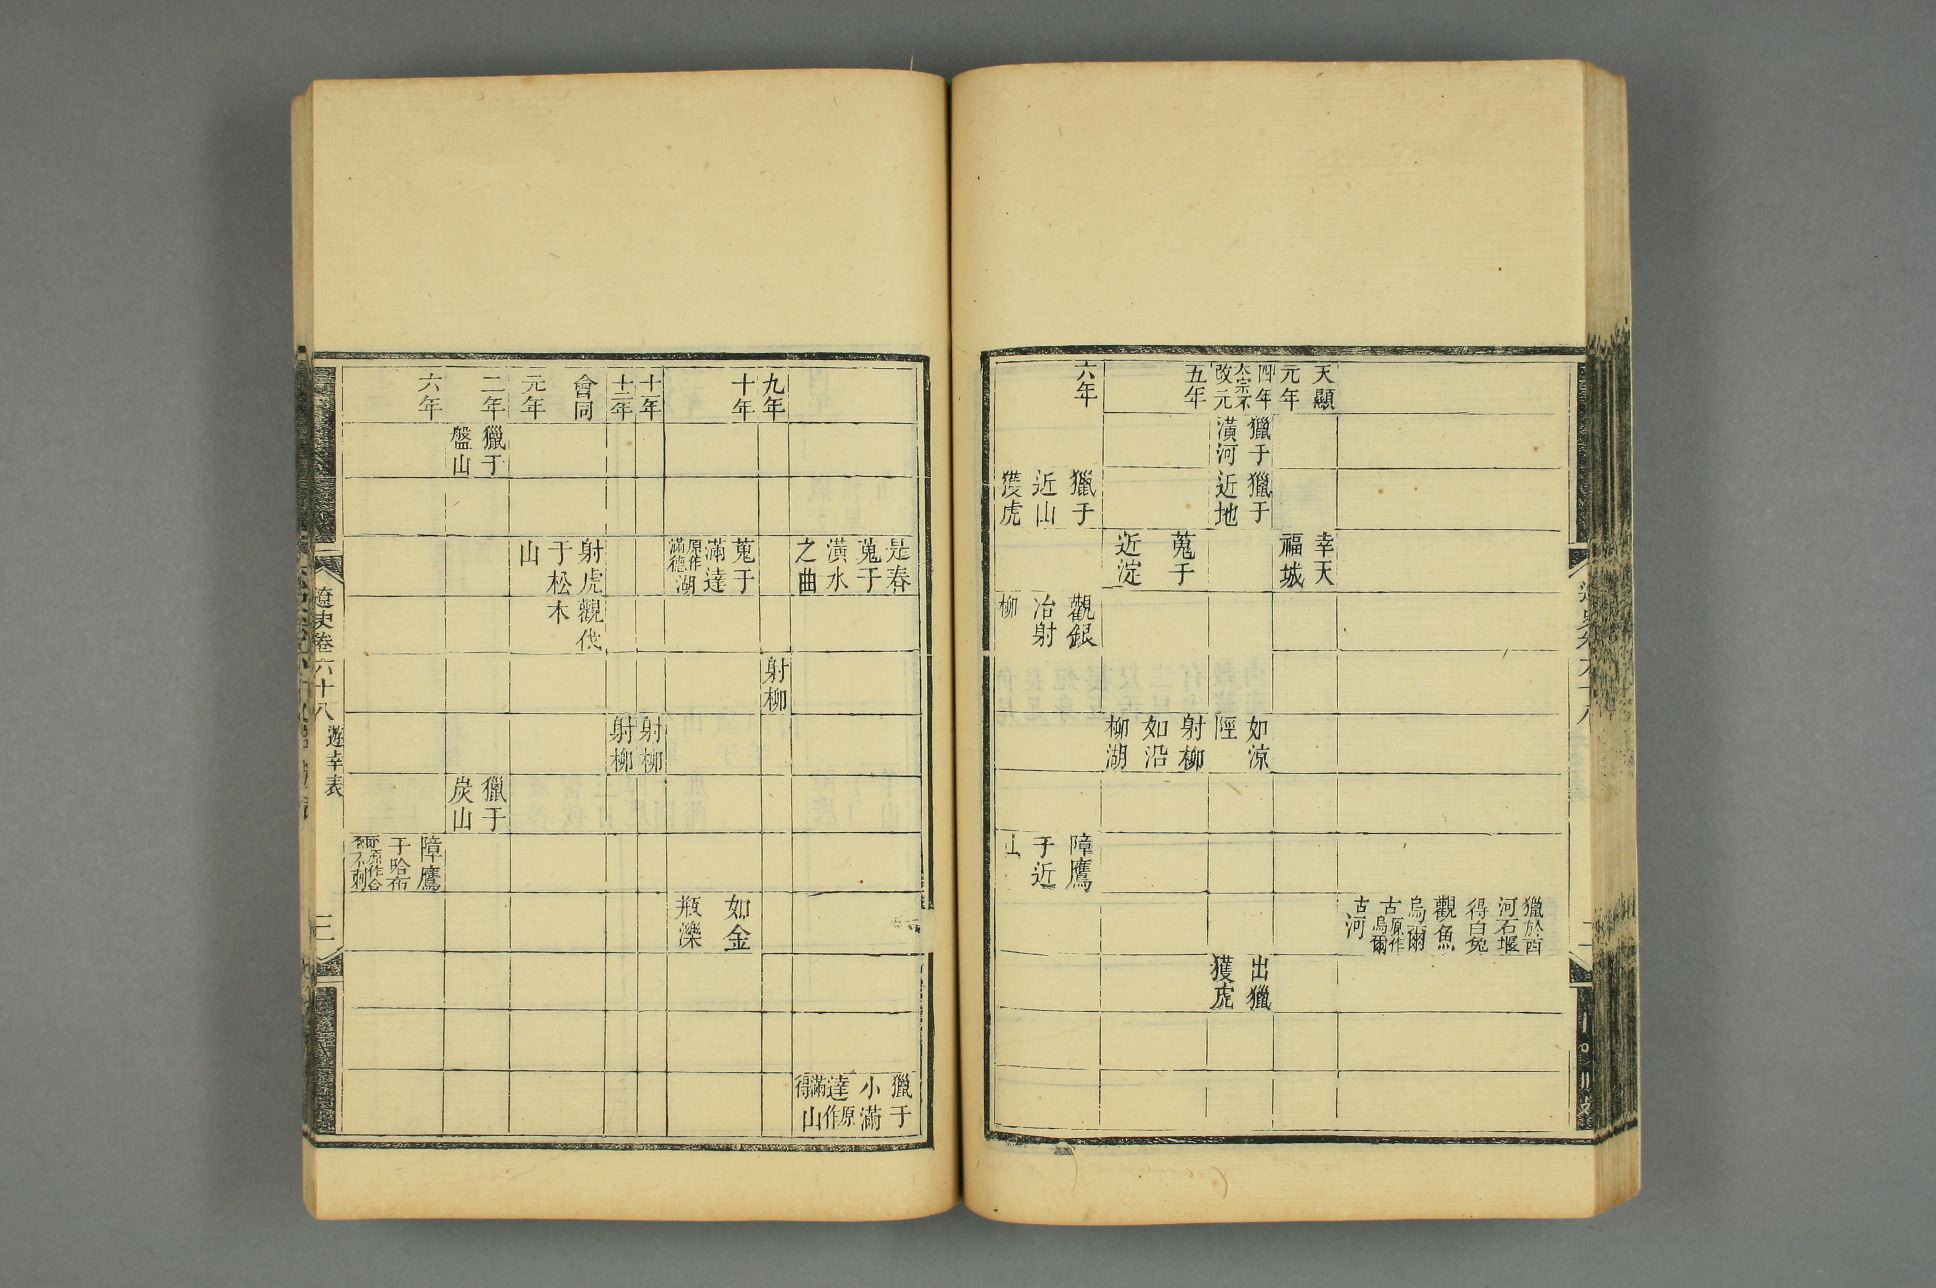 獵於酉
河石堰
得白兔
觀魚
烏爾
古原作烏爾
古河
天顯
元年
幸天
福城
四年
太宗不
改元
獵于
潢河
獵于
近地
如涼
陘
出獵
獲虎
五年
蒐于
近淀
射柳
如沿
柳湖
六年
獵于
近山
獲虎
觀銀
冶射
柳
障鷹
于近
山
是春
蒐于
潢水
之曲
獵于
小滿
達原作
滿得
山
九年
射柳
十年
蒐于
滿達
原作
滿德湖
如金
瓶濼
十一年
射柳
十二年
射柳
會同
元年
射虎觀伐
于松木
山
二年
獵于
盤山
獵于
炭山
六年
障鷹
于哈布
原作合
不刺
遼史卷六十八
遊幸表
三